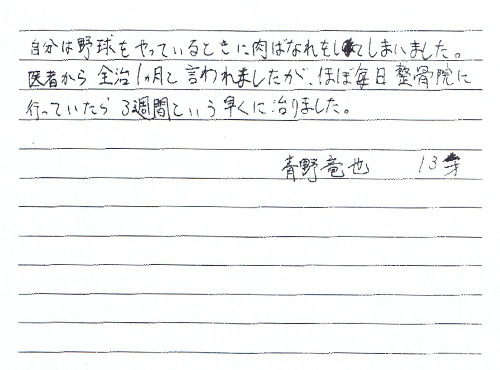 自分は野球をやっているときに肉ばなれをしてしまいました。
医者から全治1ヵ月と言われましたが、ほぼ毎日整骨院に
行っていたら3週間という早くに治りました。
青野竜也 13才